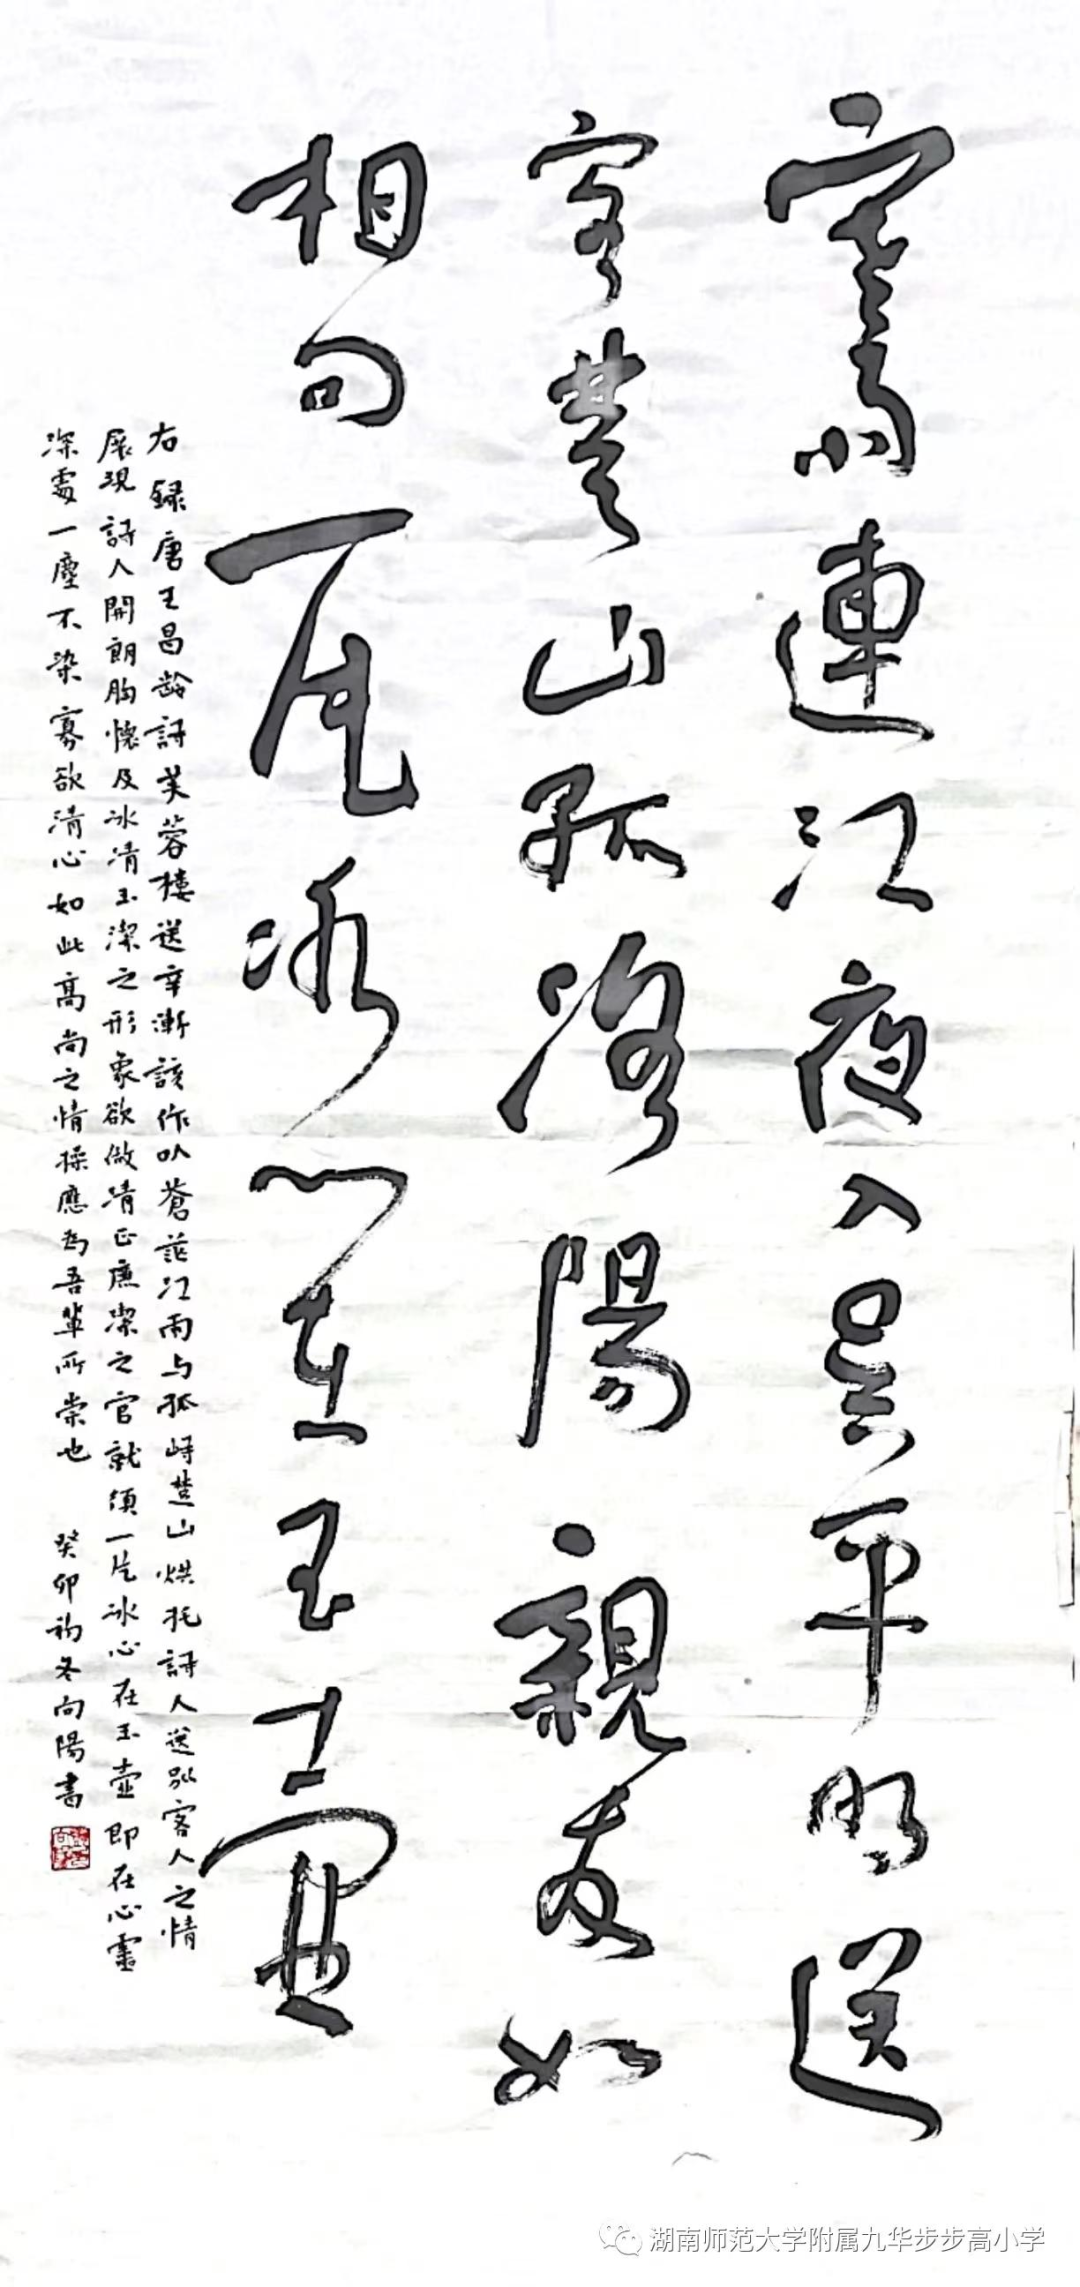 寒雨連江夜入吴平明送
客楚山孤洛陽親友如
相问一片冰心在玉壶
右録唐王昌齡詩芙蓉樓送辛漸該作以蒼茫江雨与孤峙楚山烘托詩人送别客人之情
展現詩人開朗胸懷及冰清玉潔之形象欲做清正廉潔之官就須一片冰心在玉壶即在心靈
深處一塵不染寡欲清心如此高尚之情操應为吾輩所崇也 癸卯初冬向陽書
湖南师范大学附属九华步步高小学